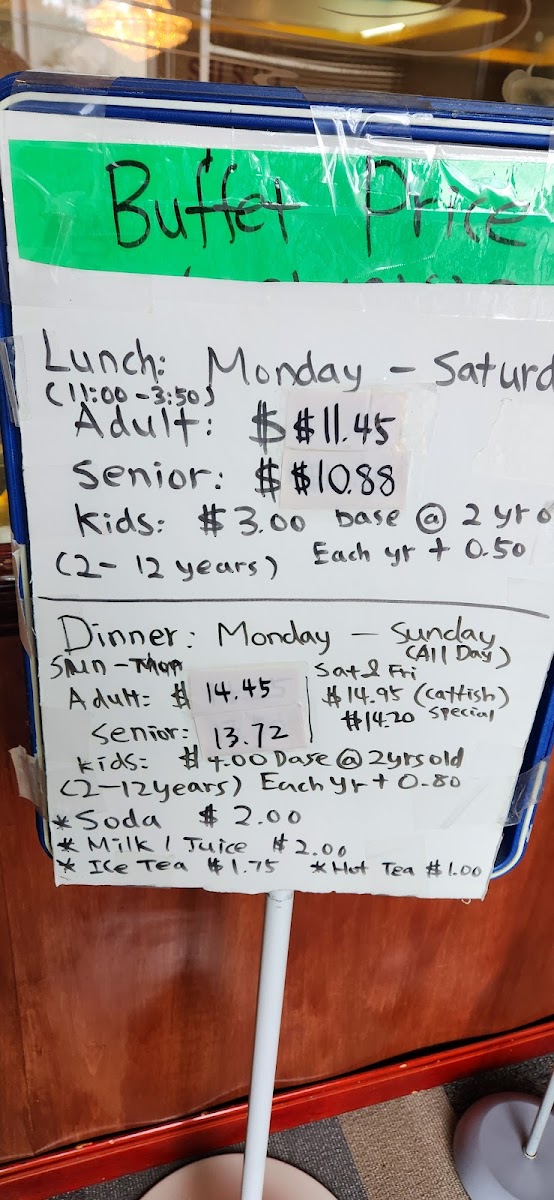 Buffet Price
Lunch: Monday - Saturd
(11:00-3:50)
Adult: $ $11.45
Senior: $ $10.88
Kids: $3.00 base @ 2 yr o
(2-12 years) Each yr + 0.50
Dinner: Monday - Sunday
(All Day)
Sun-Thur Sat & Fri
Adult: $ 14.45 $14.95 (catfish)
Senior: 13.72 $14.20 special
Kids: $4.00 Base @ 2yrs old
(2-12years) Each yr + 0.80
*Soda $2.00
*Milk / Juice $2.00
*Ice Tea $1.75 *Hot Tea $1.00